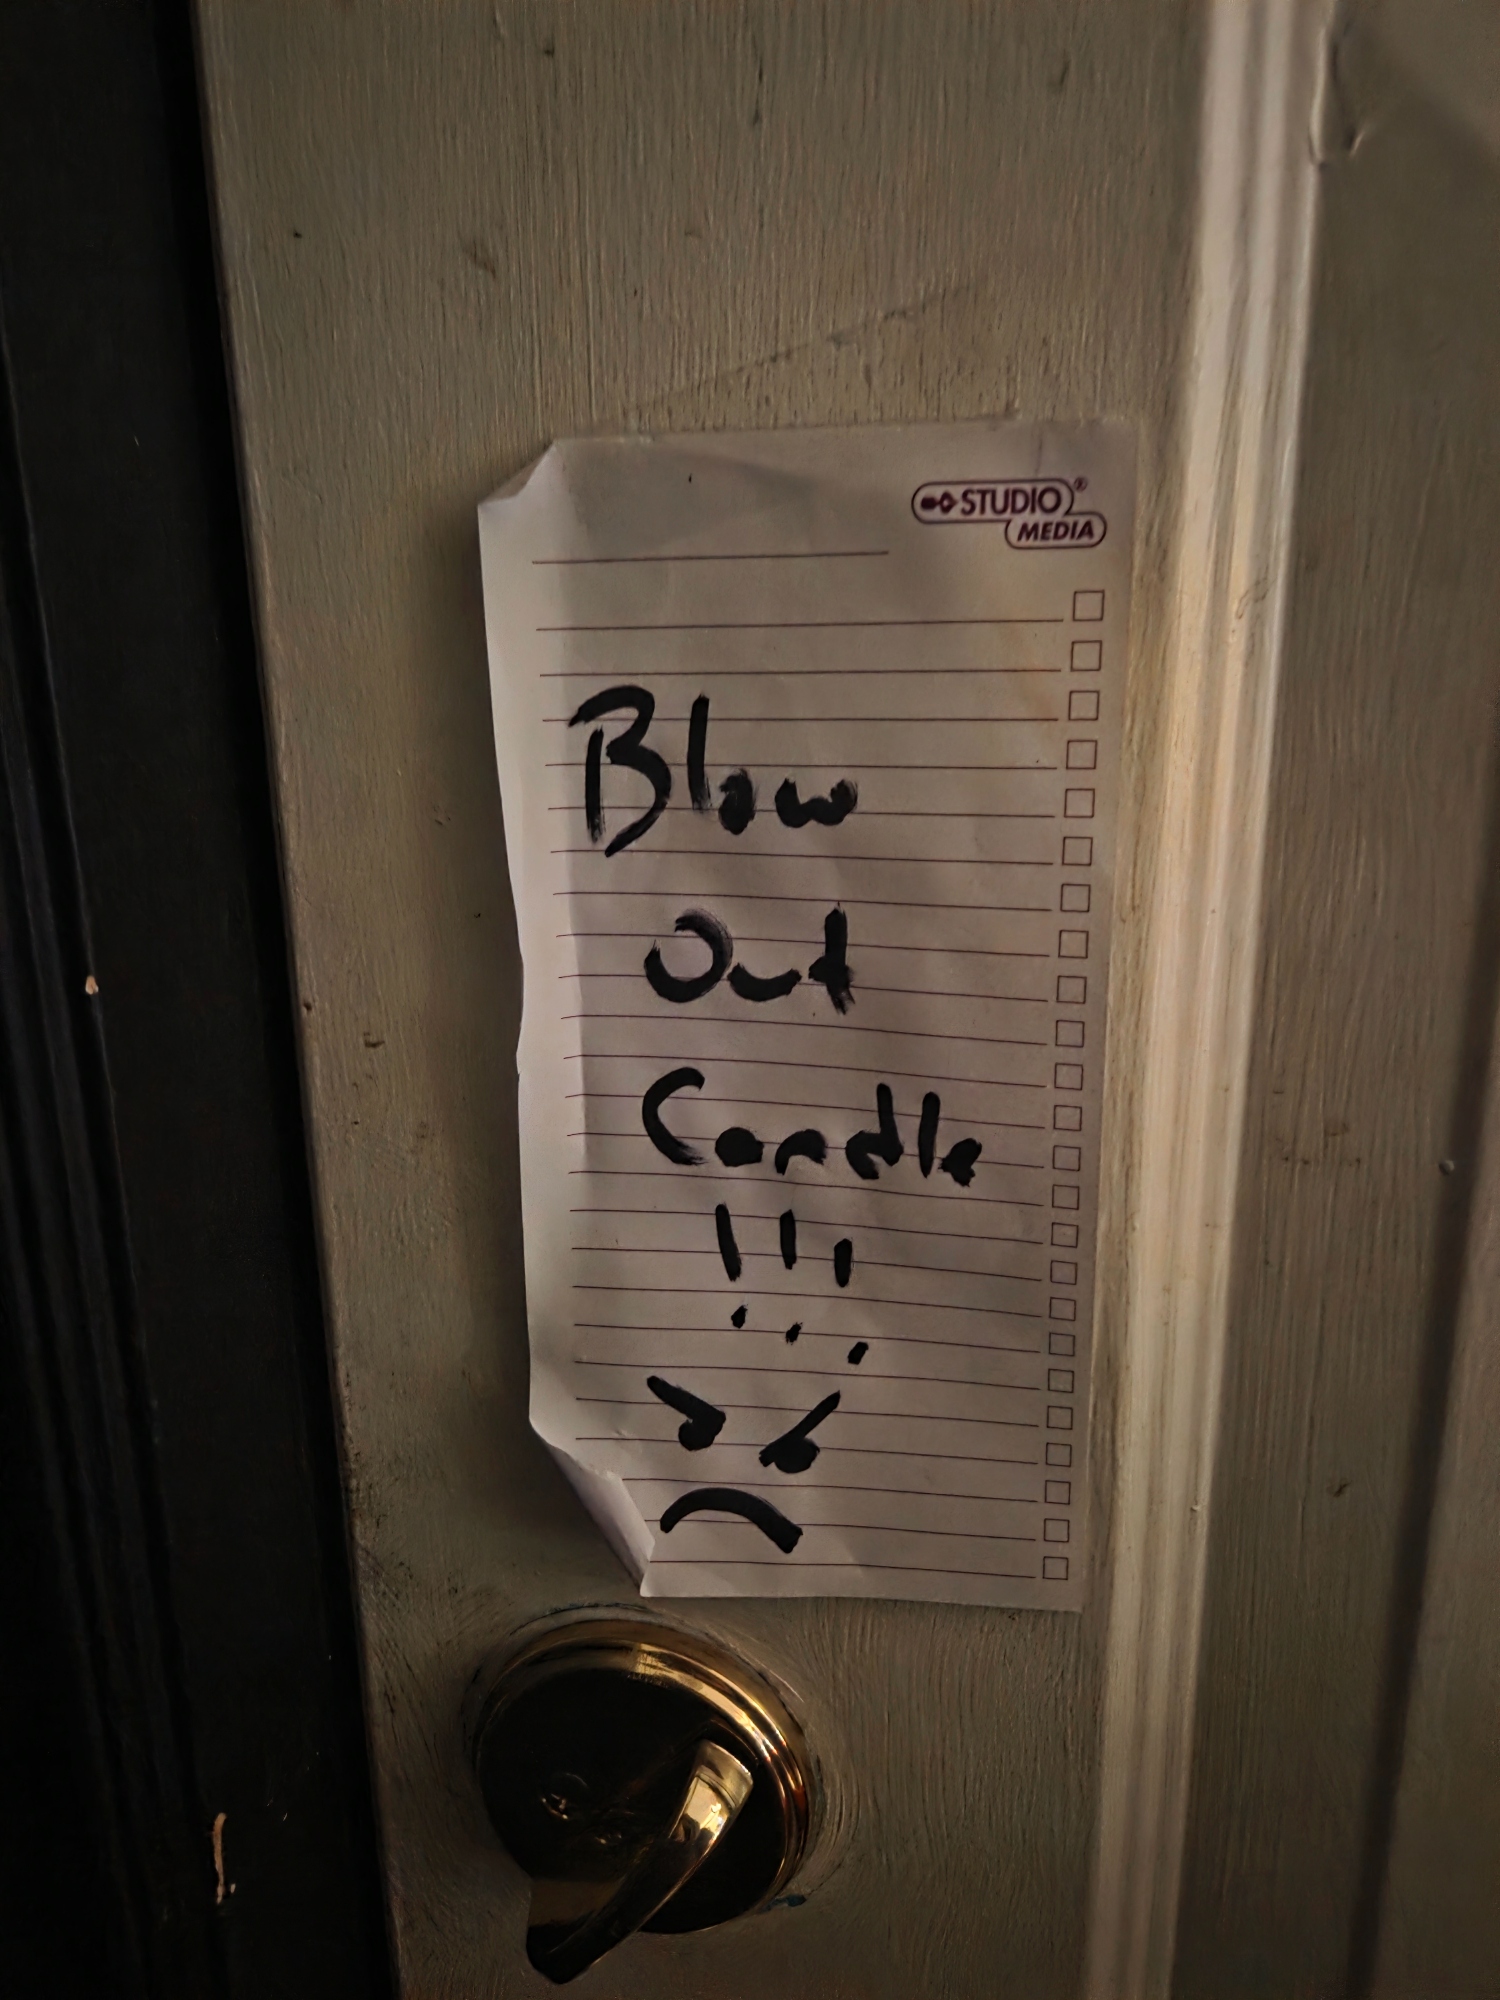 STUDIO®
MEDIA
Blow
Out
Candle
!!!